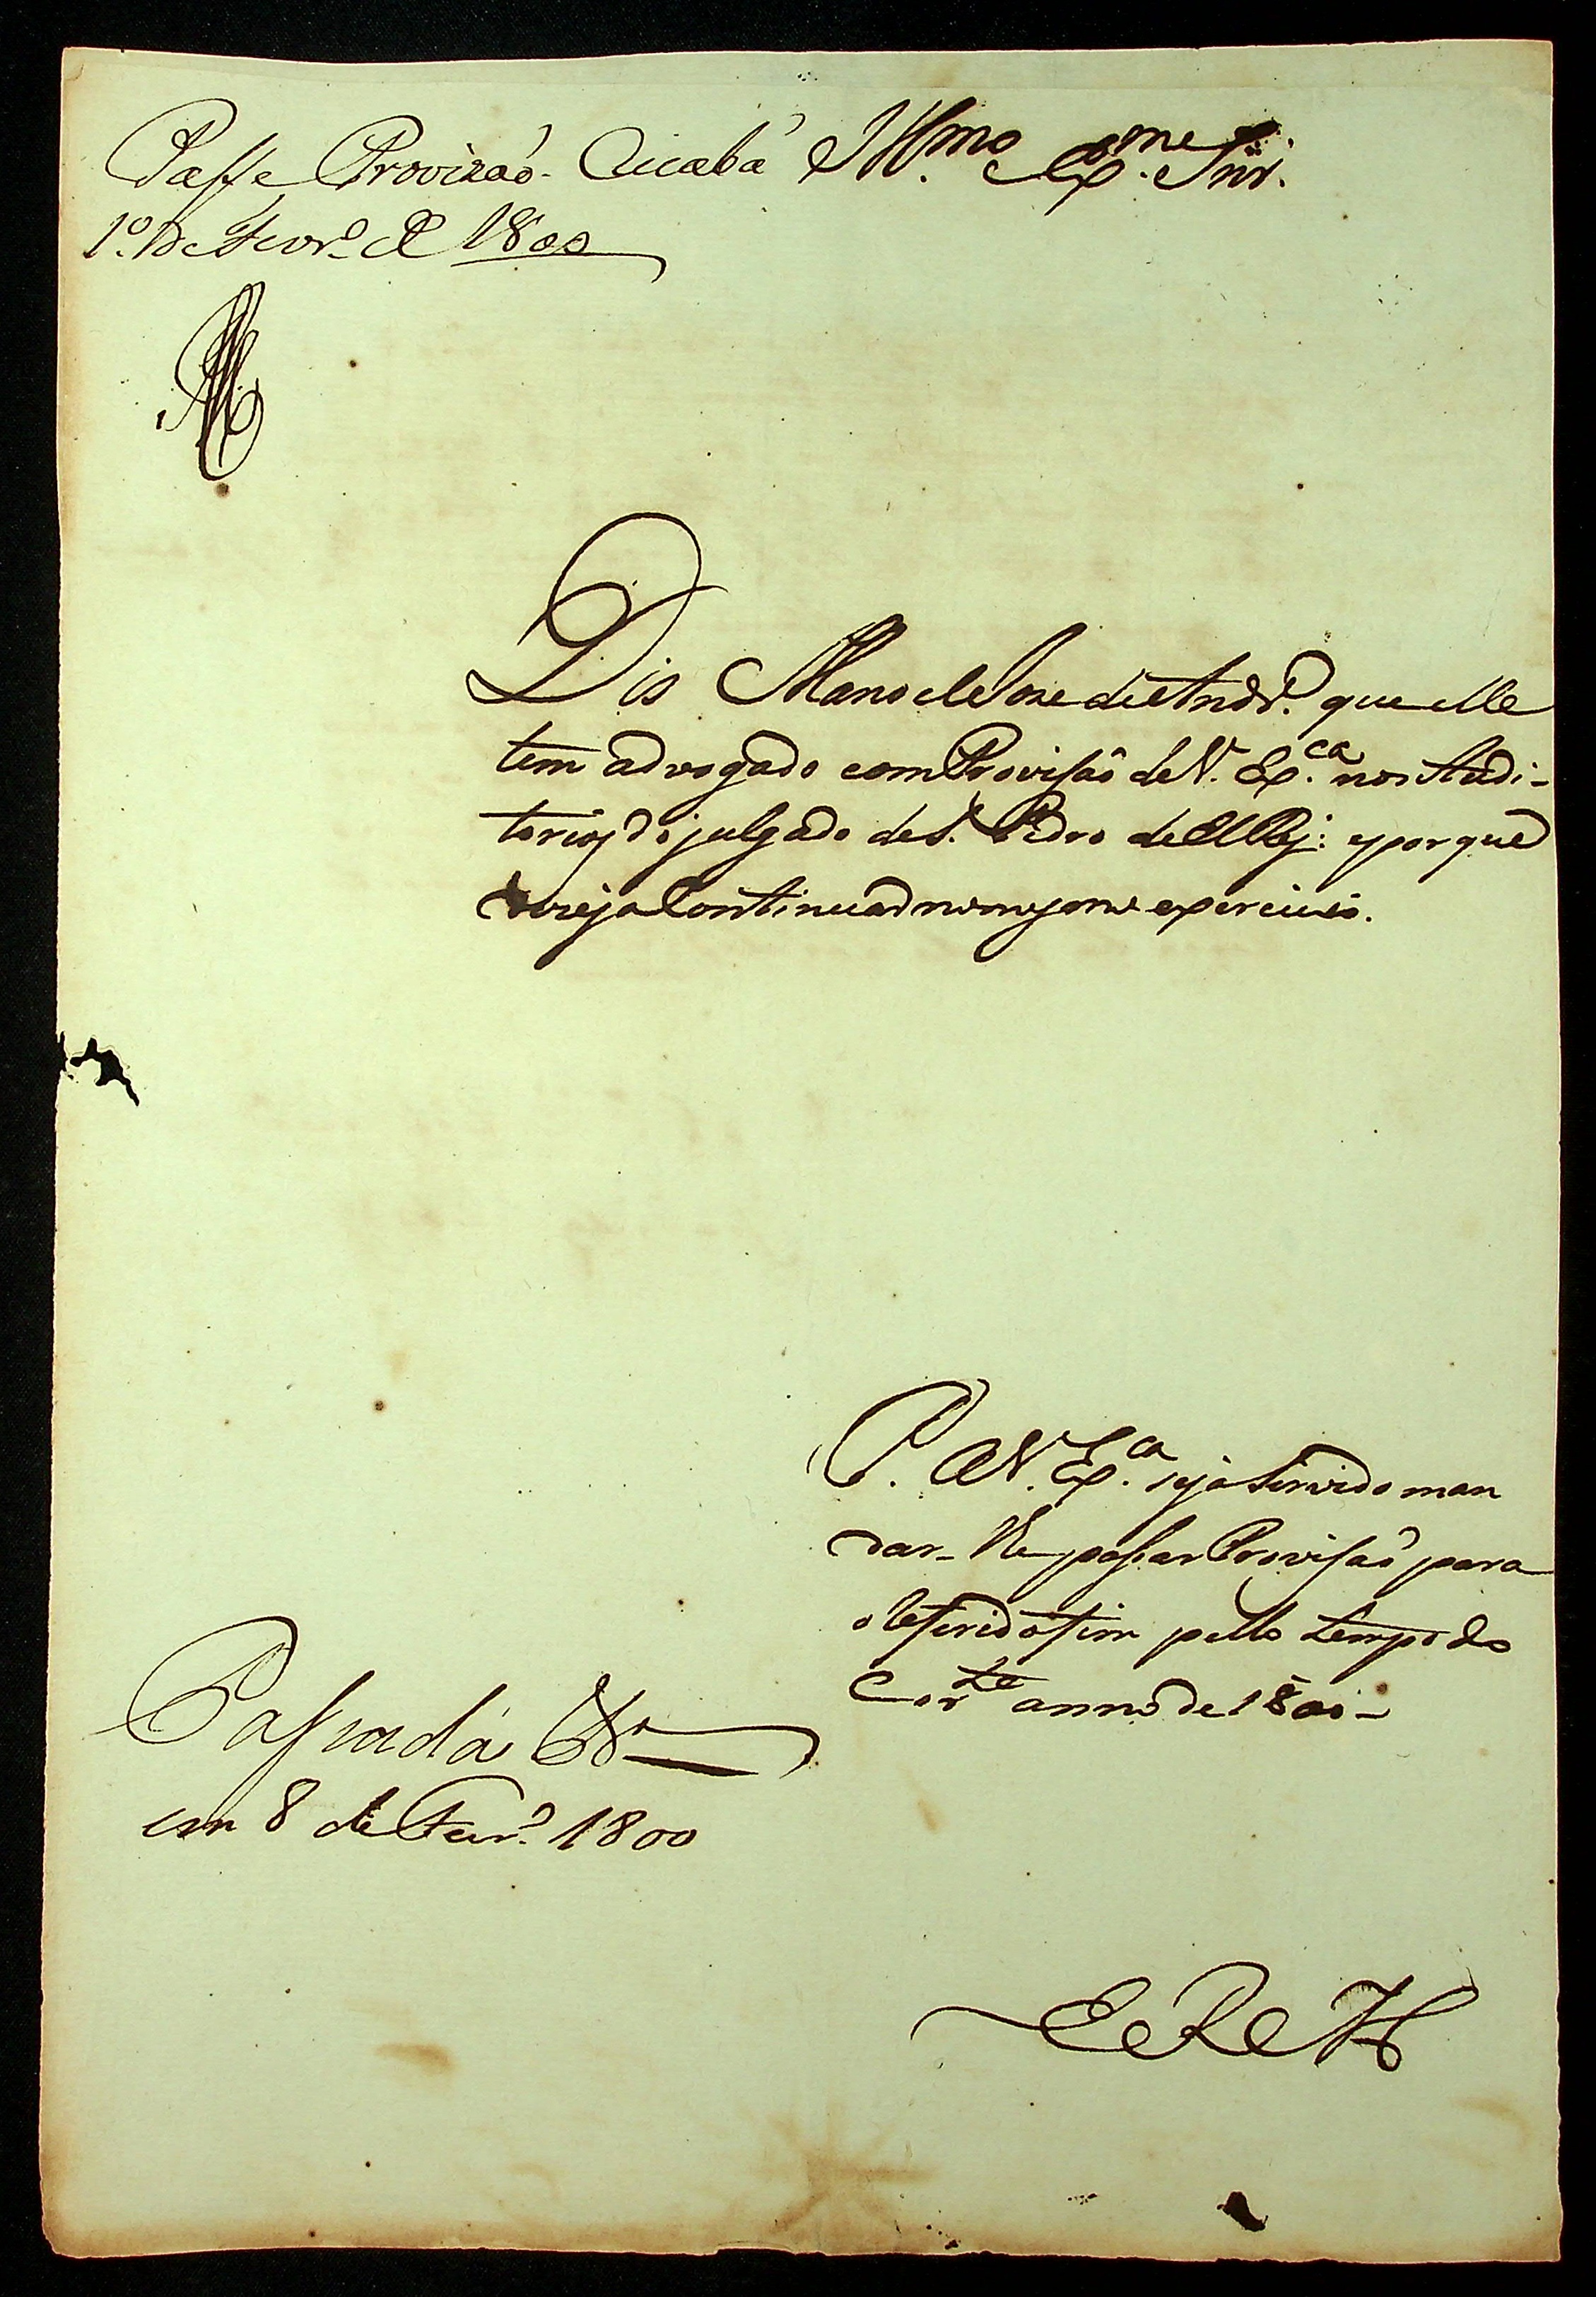 Passe Provizaõ. Cuiabá
1º. De Fevrº. de 1800
Illmo. e Exmo. Snr.
Dis Manoel Jose de Andrº. que elle
tem advogado com Provisaõ de V. Ex.ca nos Audi-
torios do julgado de S. Pedro de El Rej: e porque
dezeja Continuar no mesmo exercicio.
P. A V. Ex.ca seja Servido man
dar-lhe passar Provisaõ para
o referido fim pello tempo do
Corte anno de 1800-
Passada
em 8 de Fevrº. 1800
E R M